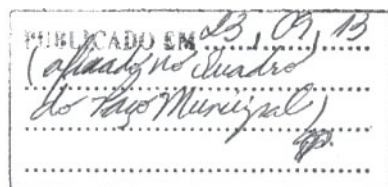 PUBLICADO EM 23, 09, 13
(afixado no Quadro
do Paço Municipal)